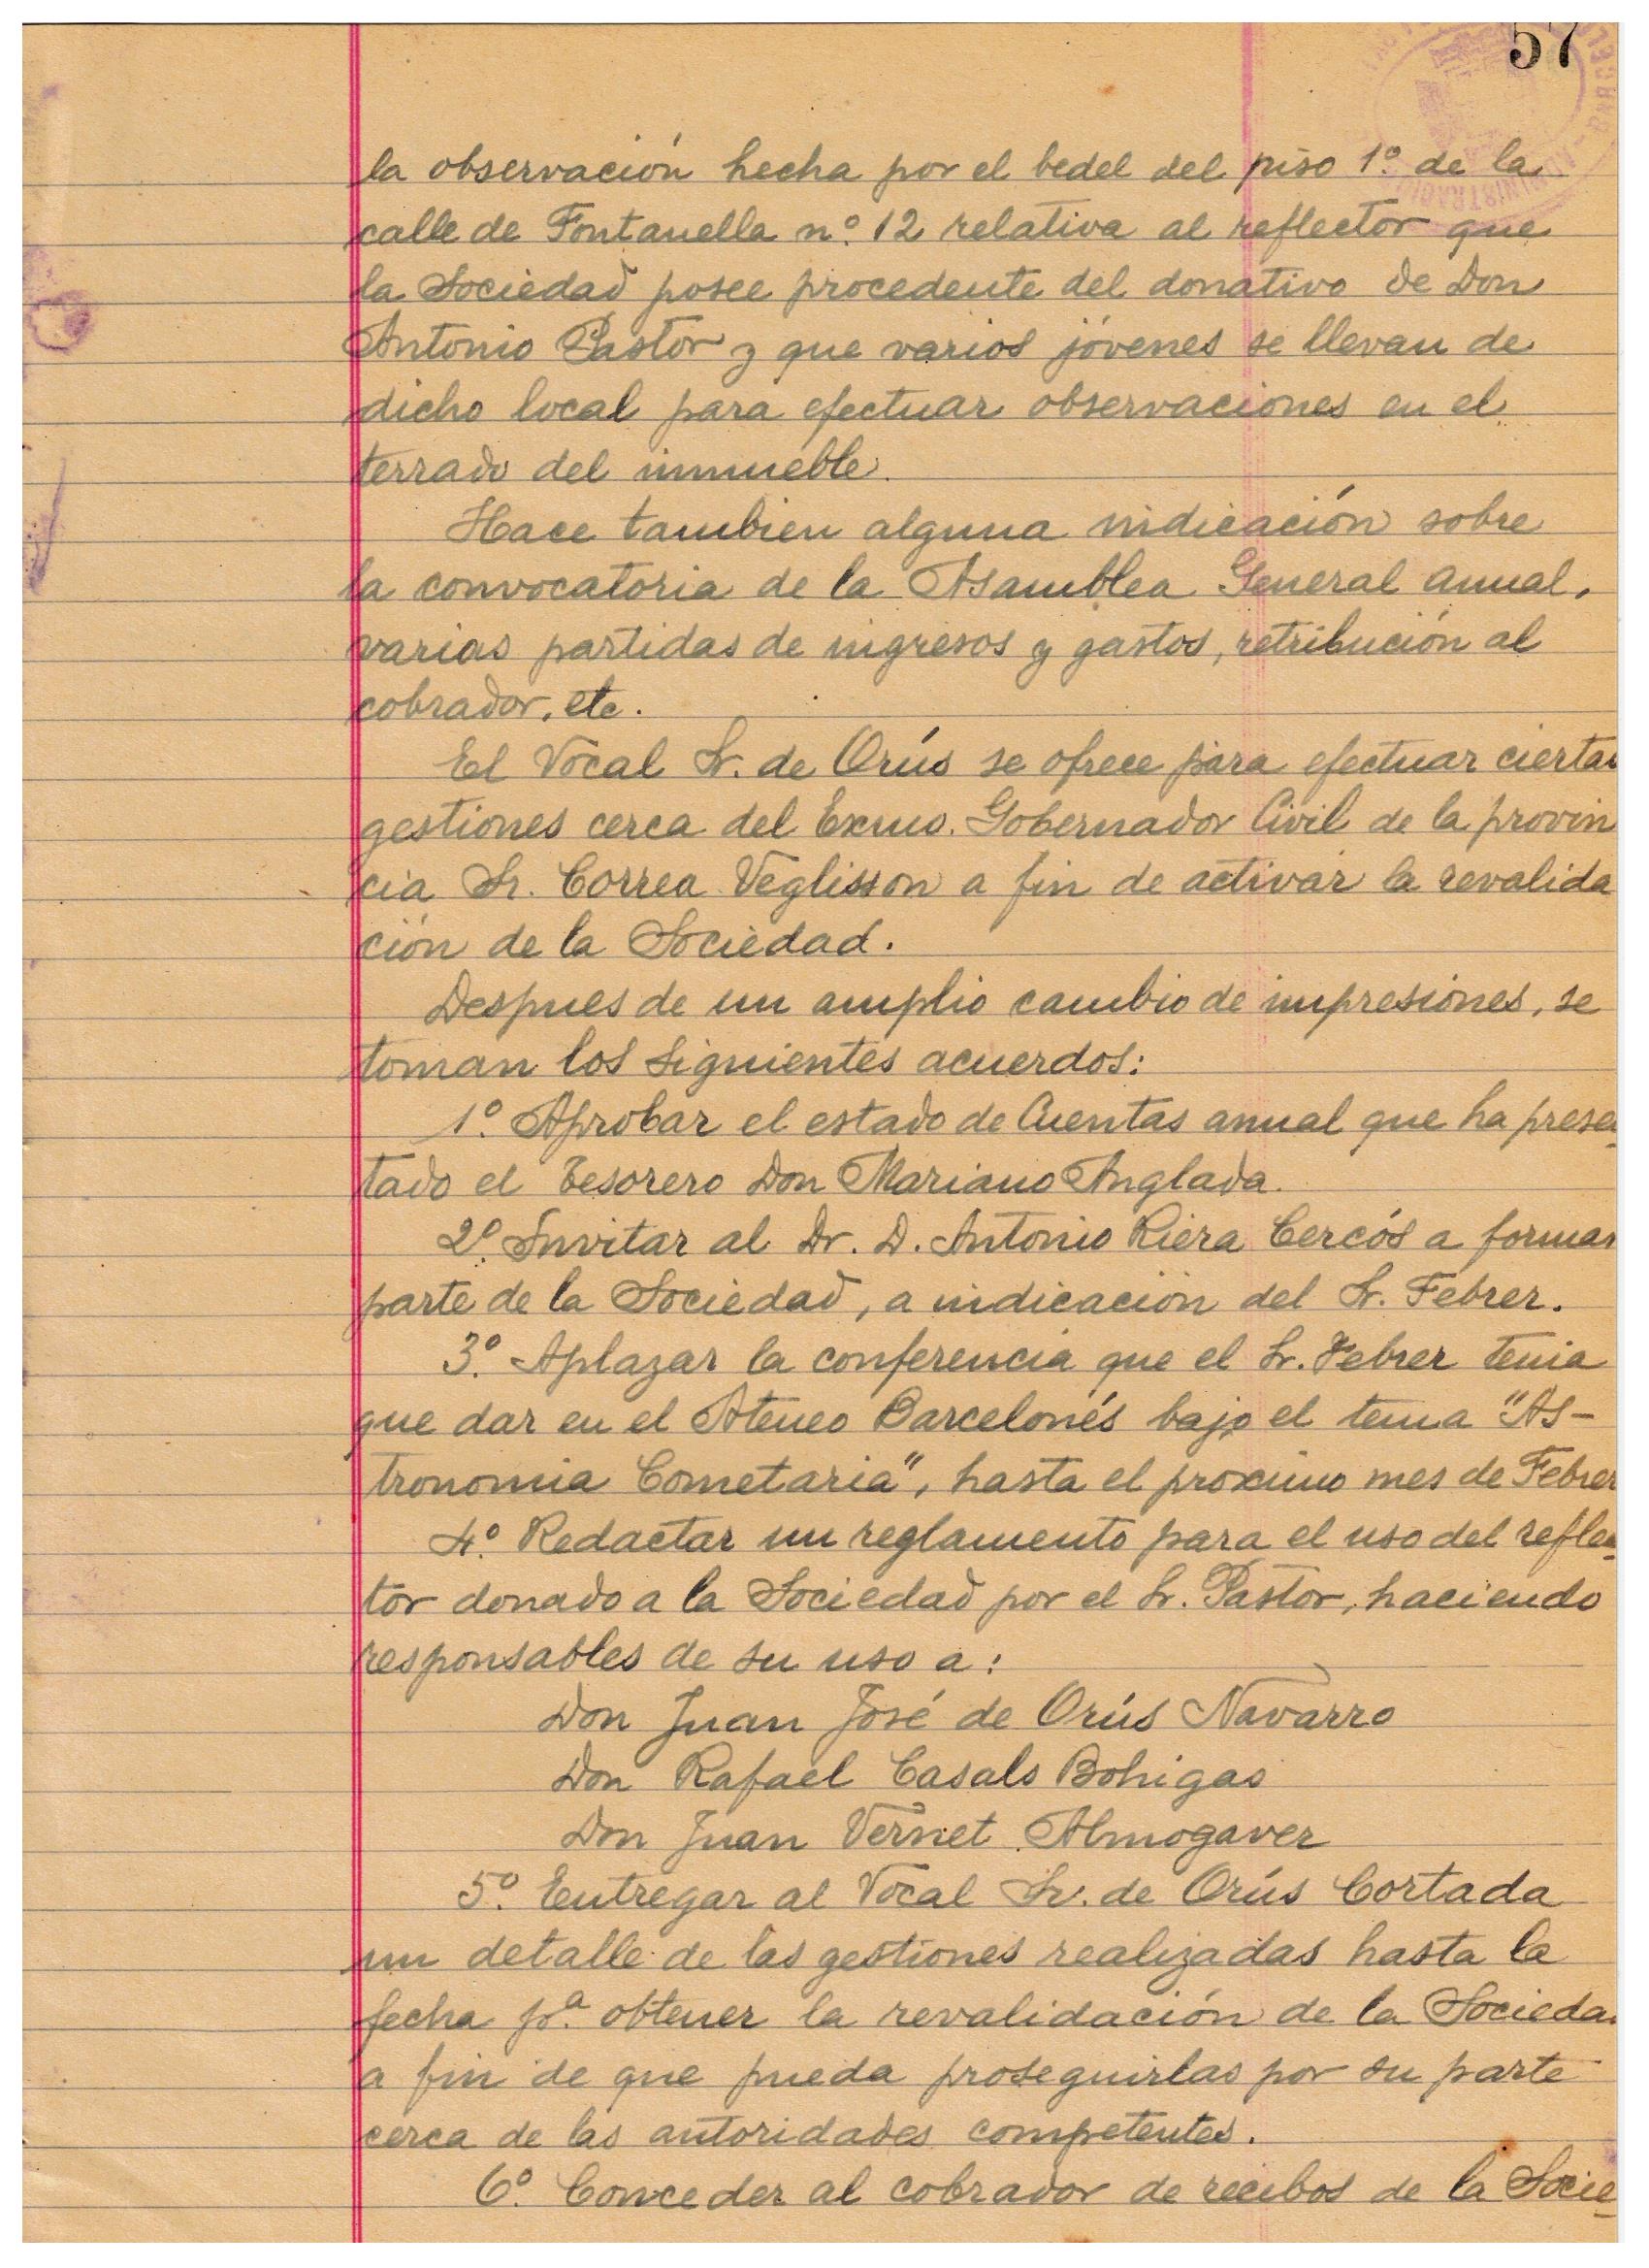 57
la observación hecha por el bedel del piso 1º. de la
calle de Fontanella nº. 12 relativa al reflector que
la Sociedad posee procedente del donativo de Don
Antonio Pastor y que varios jóvenes se llevan de
dicho local para efectuar observaciones en el
terrado del inmueble.
Hace tambien alguna indicación sobre
la convocatoria de la Asamblea General anual,
varias partidas de ingresos y gastos, retribución al
cobrador, etc.
El Vocal Sr. de Orús se ofrece para efectuar ciertas
gestiones cerca del Excmo. Gobernador Civil de la provin
cia Sr. Correa Veglisson a fin de activar la revalida
ción de la Sociedad.
Despues de un amplio cambio de impresiones, se
toman los siguientes acuerdos:
1º. Aprobar el estado de Cuentas anual que ha presen
tado el Tesorero Don Mariano Anglada.
2º. Invitar al Dr. D. Antonio Riera Cercós a formar
parte de la Sociedad, a indicación del Sr. Febrer.
3º. Aplazar la conferencia que el Sr. Febrer tenia
que dar en el Ateneo Barcelonés bajo el tema "As-
tronomia Cometaria", hasta el proximo mes de Febrer
4º. Redactar un reglamento para el uso del reflec-
tor donado a la Sociedad por el Sr. Pastor, haciendo
responsables de su uso a:
Don Juan José de Orús Navarro
Don Rafael Casals Bohigas
Don Juan Vernet Almogaver
5º. Entregar al Vocal Sr. de Orús Cortada
un detalle de las gestiones realizadas hasta la
fecha pª. obtener la revalidación de la Sociedad
a fin de que pueda proseguirlas por su parte
cerca de las autoridades competentes.
6º. Conceder al cobrador de recibos de la Socie-